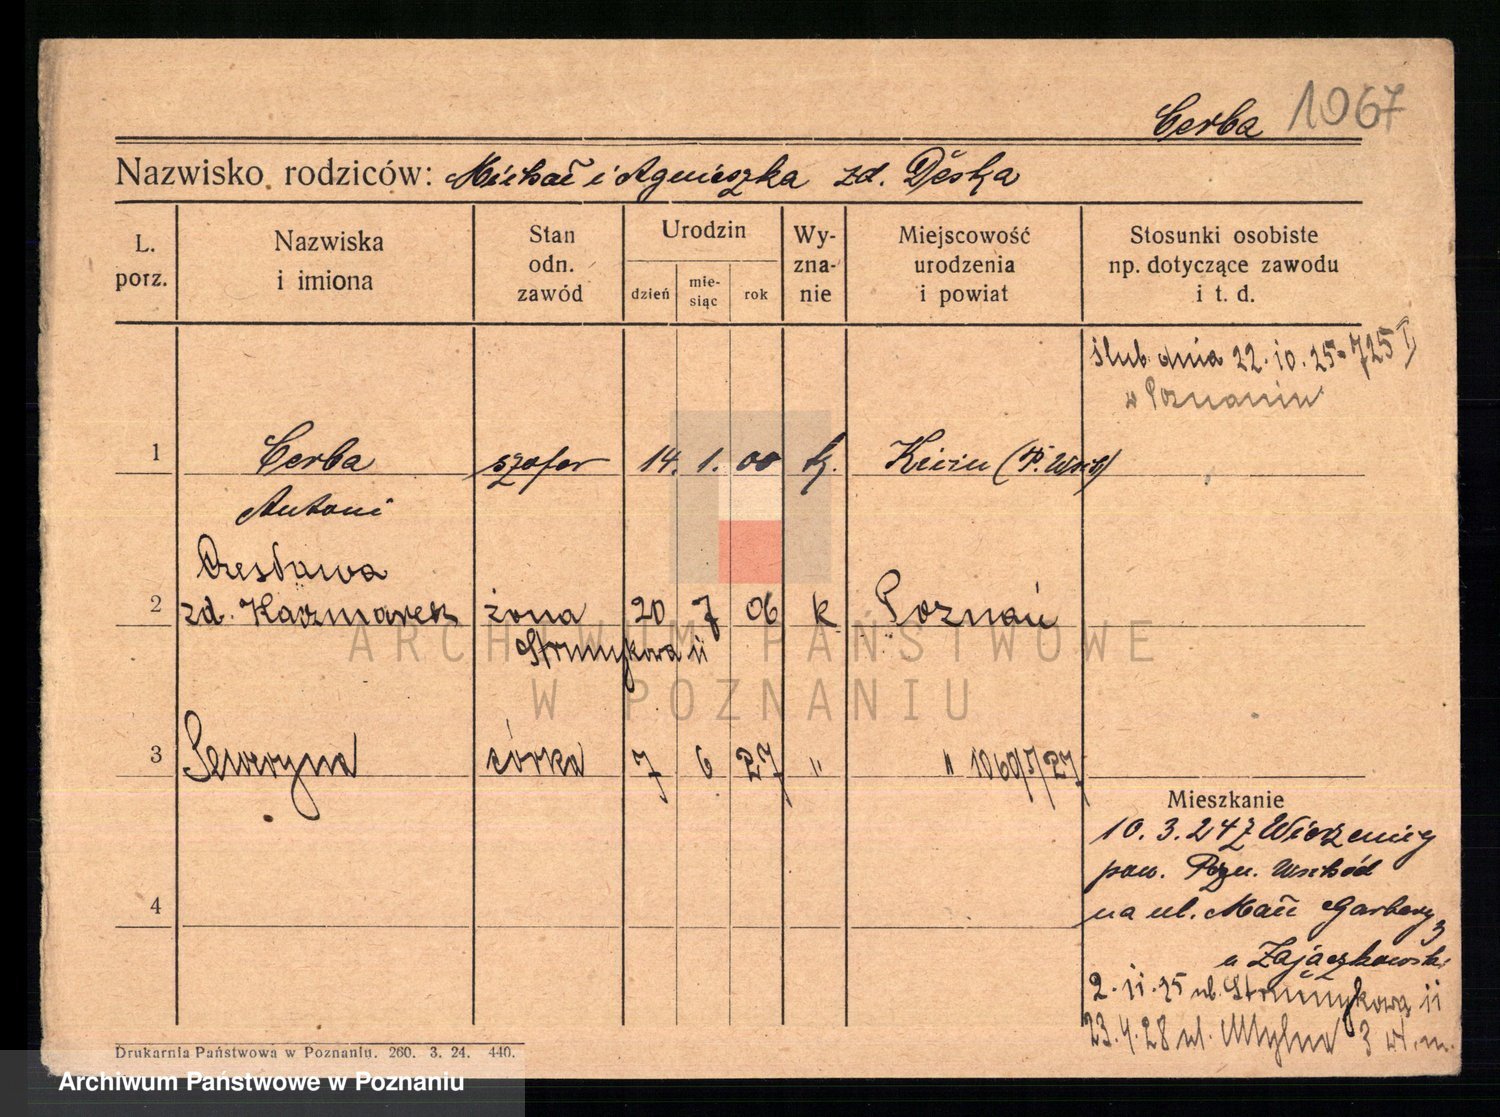 Cerba 1067
Nazwisko rodziców: Michał i Agnieszka zd. Deska
L. porz.
Nazwiska i imiona
Stan odn. zawód
Urodzin
dzień
mie-siąc
rok
Wy-zna-nie
Miejscowość urodzenia i powiat
Stosunki osobiste np. dotyczące zawodu i t. d.
ślub dnia 22.10.25 - 725 I
w Poznaniu
1 Cerba szofer 14. 1. 00 Kicin (P. Wsch)
Antoni
Czesława
2 zd. Kaczmarek żona 20 7 06 k Poznań
Strumykowa 11
3 Seweryna córka 7 6 27 " " 1060/I/27
4
Mieszkanie
10. 3. 24 z Wierzenicy
pow. Pozn. Wschód
na ul. Małe Garbary 3
u Zajączkowski
2.11.25 ul. Strumykowa 11
23.4.28 ul. Młyńska 3
Drukarnia Państwowa w Poznaniu. 260. 3. 24. 440.
ARCHIWUM PAŃSTWOWE
W POZNANIU
Archiwum Państwowe w Poznaniu